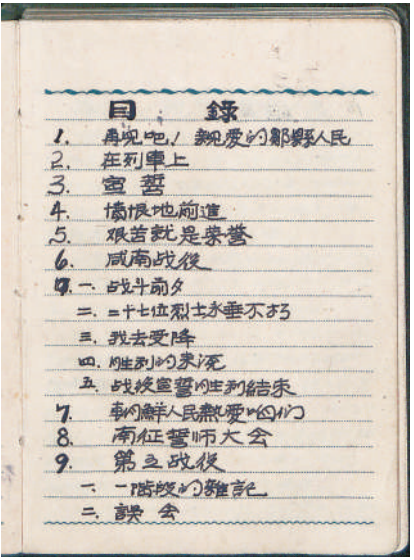 目 錄
1. 再見吧！親愛的鄒縣人民
2. 在列車上
3. 宣誓
4. 憤恨地前進
5. 艰苦就是荣誉
6. 咸南战役
一、战斗前夕
二、二十七位烈士永垂不朽
三、我去受降
四、胜利的来源
五、战役宣誓胜利結束
7. 朝鮮人民熱愛咱们
8. 南征誓师大会
9. 第五战役
一、一階段的雜記
二、誤会